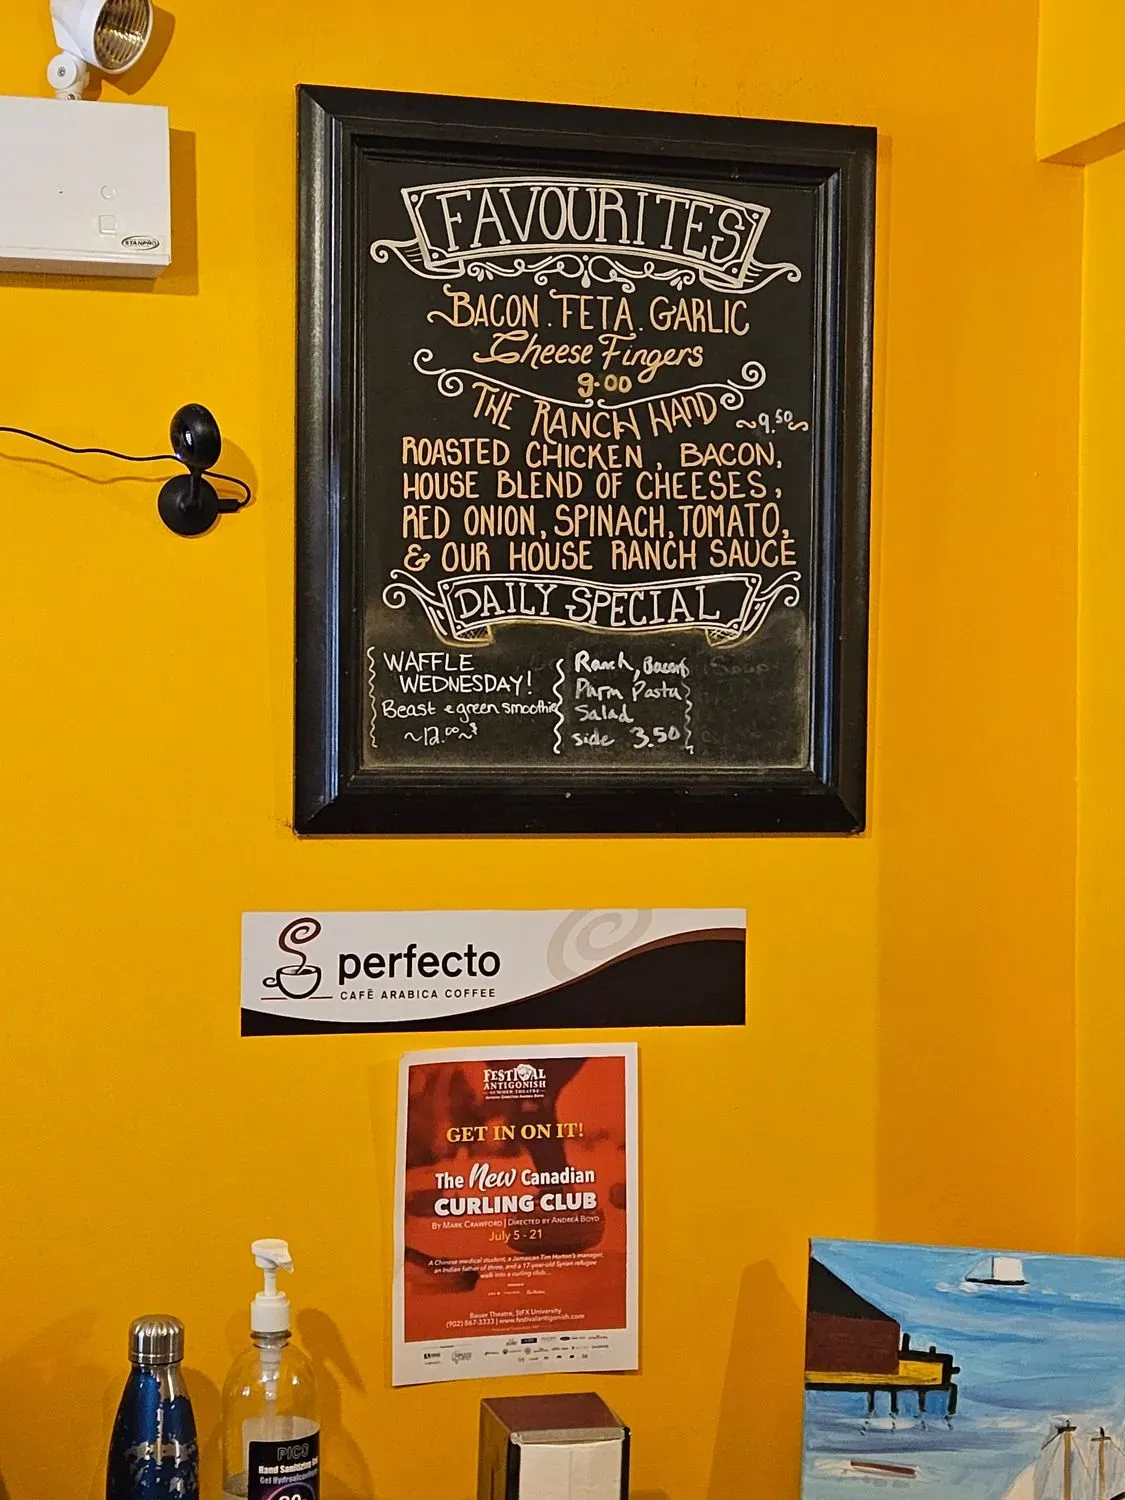 STANPRO
FAVOURITES
BACON . FETA . GARLIC
Cheese Fingers
9.00
THE RANCH HAND
~9.50~
ROASTED CHICKEN, BACON,
HOUSE BLEND OF CHEESES,
RED ONION, SPINACH, TOMATO,
& OUR HOUSE RANCH SAUCE
DAILY SPECIAL
WAFFLE
WEDNESDAY!
Beast & green smoothie
~12.00~$
Ranch, Bacon
Parm Pasta
Salad
side 3.50
Soup
perfecto
CAFÉ ARABICA COFFEE
FESTIVAL
ANTIGONISH
SUMMER THEATRE
ARTISTIC DIRECTOR ANDREA BOYD
GET IN ON IT!
The New Canadian
CURLING CLUB
BY MARK CRAWFORD | DIRECTED BY ANDREA BOYD
July 5 - 21
A Chinese medical student, a Jamaican Tim Horton's manager,
an Indian father of three, and a 17-year-old Syrian refugee
walk into a curling club...
Bauer Theatre, StFX University
(902) 867-3333 | www.festivalantigonish.com
PICO
Hand Sanitizing Gel
Gel Hydroalcoolique